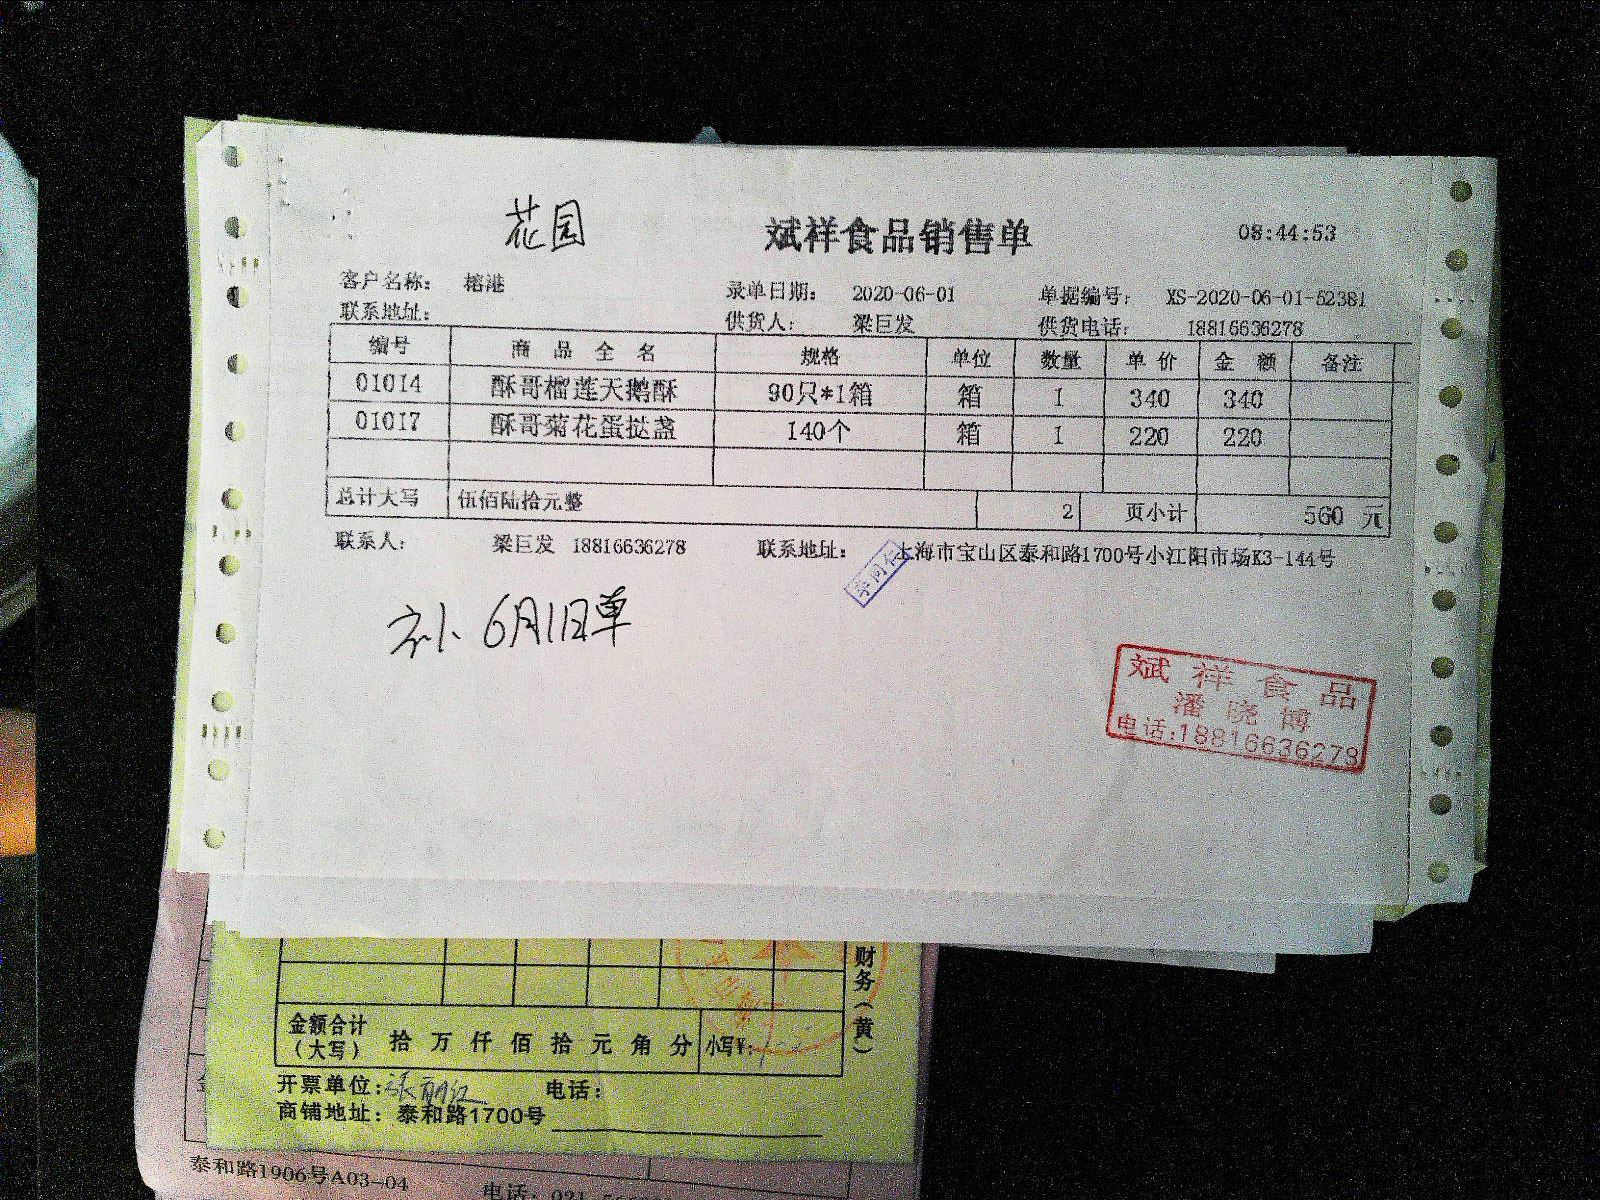 花园
斌祥食品销售单
08:44:53
客户名称： 榕港
录单日期： 2020-06-01
单据编号： XS-2020-06-01-52381
联系地址：
供货人： 梁巨发
供货电话： 18816636278
编号 商品全名 规格 单位 数量 单价 金额 备注
01014 酥哥榴莲天鹅酥 90只*1箱 箱 1 340 340
01017 酥哥菊花蛋挞盏 140个 箱 1 220 220
总计大写 伍佰陆拾元整 2 页小计 560 元
联系人： 梁巨发 18816636278 联系地址： 上海市宝山区泰和路1700号小江阳市场K3-144号
补 6月1日单
斌祥食品
潘晓博
电话:18816636278
财务（黄）
金额合计
（大写） 拾 万 仟 佰 拾 元 角 分 小写¥:
开票单位: 电话:
商铺地址: 泰和路1700号
泰和路1906号A03-04
电话: 021-